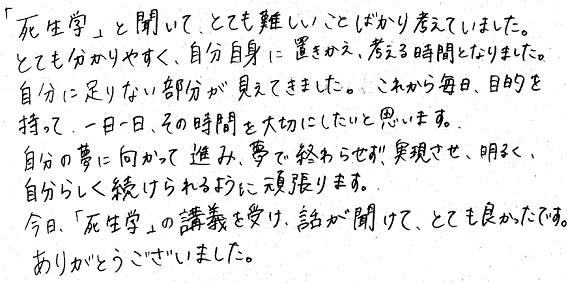 「死生学」と聞いて、とても難しいことばかり考えていました。
とても分かりやすく、自分自身に置きかえ、考える時間となりました。
自分に足りない部分が見えてきました。これから毎日、目的を
持って、一日一日、その時間を大切にしたいと思います。
自分の夢に向かって進み、夢で終わらせず、実現させ、明るく、
自分らしく続けられるように頑張ります。
今日、「死生学」の講義を受け、話が聞けて、とても良かったです。
ありがとうございました。